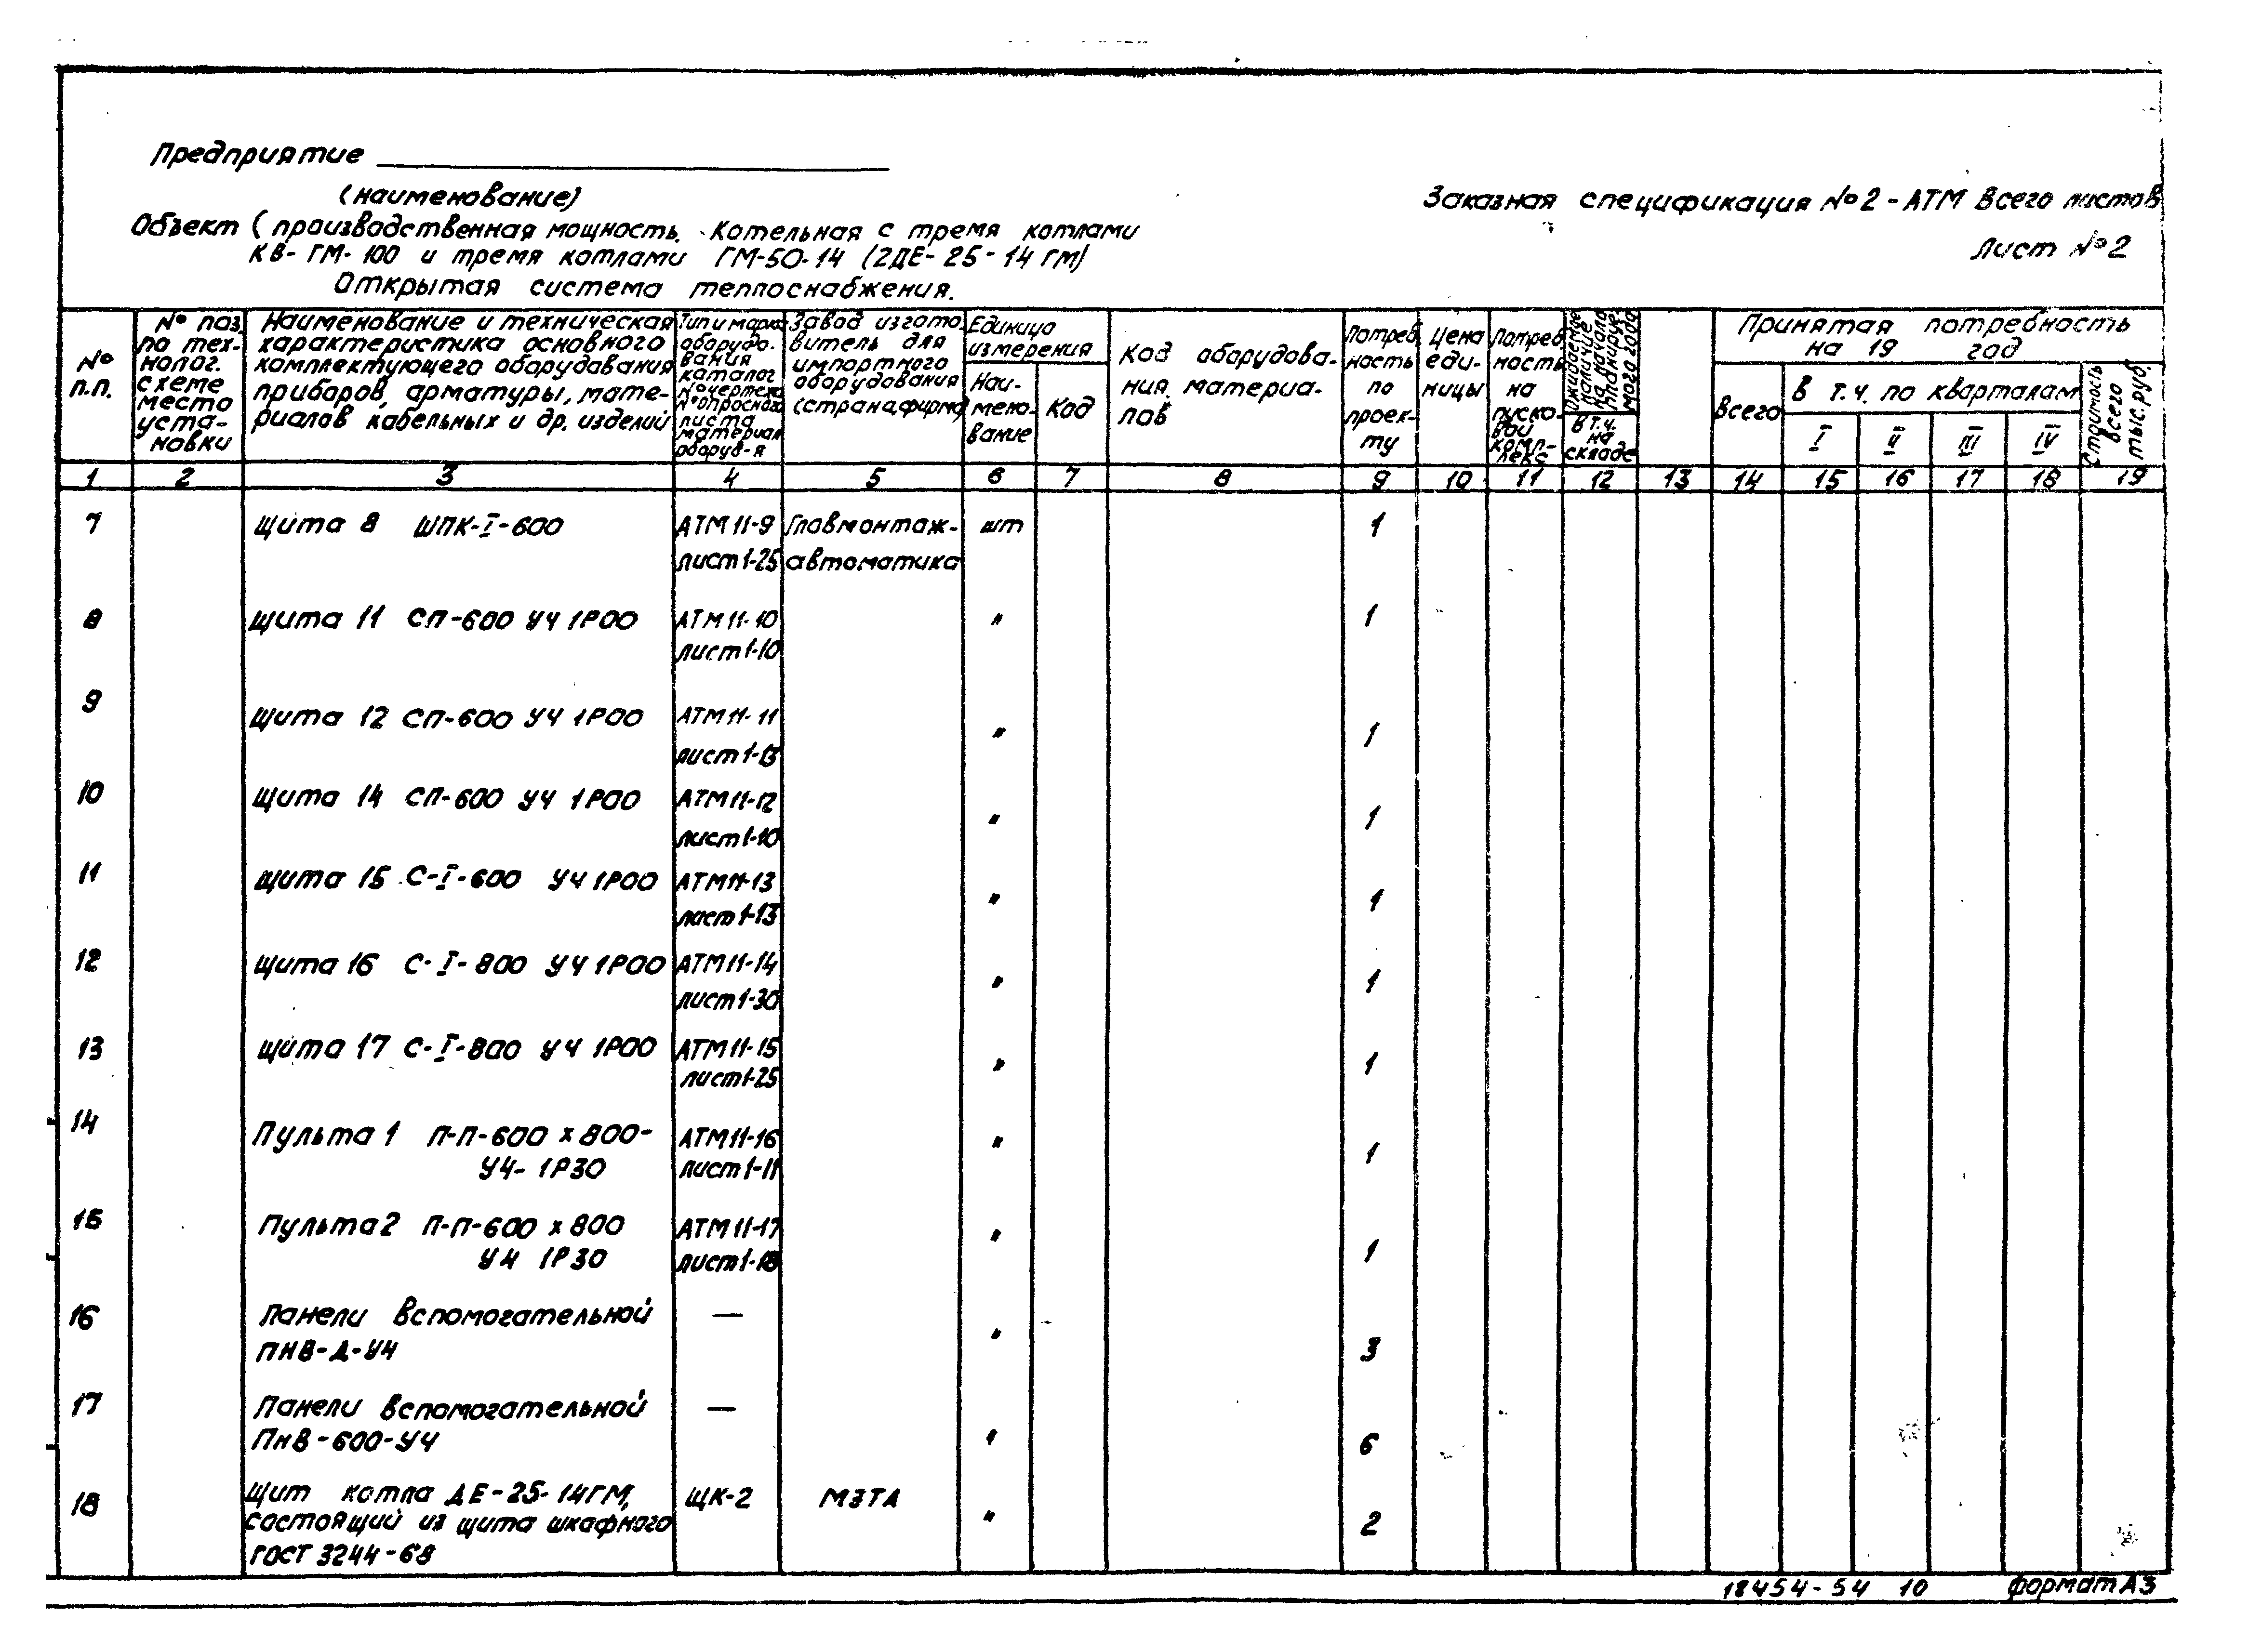 Предприятие
(наименование)
Заказная спецификация №2-АТМ Всего листов
Объект (производственная мощность. Котельная с тремя котлами
КВ-ГМ-100 и тремя котлами ГМ-50-14 (2ДЕ-25-14 ГМ)
Лист №2
Открытая система теплоснабжения.
№
п.п.
№ поз.
по тех-
нолог.
схеме
место
уста-
новки
Наименование и техническая
характеристика основного
комплектующего оборудования
приборов, арматуры, мате-
риалов кабельных и др. изделий
Тип и марка
оборудо-
вания
каталог
№чертежа
№опросного
листа
материал
оборуд-я
Завод изгото
витель для
импортного
оборудования
(страна, фирма)
Единица
измерения
Наи-
мено-
вание
Код
Код оборудова-
ния, материа-
лов
Потреб
ность
по
проек-
ту
Цена
еди-
ницы
Потреб
ность
на
пуско-
вой
комп-
лекс
Ожидаемое
наличие
на начало
планируе
мого года
В т.ч.
на
складе
Принятая потребность
на 19 год
Всего
В т.ч. по кварталам
I II III IV
Стоимость
всего
тыс.руб.
1 2 3 4 5 6 7 8 9 10 11 12 13 14 15 16 17 18 19
7 Щита 8 ШПК-I-600 АТМ11-9 Главмонтаж- шт 1
лист1-25 автоматика
8 Щита 11 СП-600 УЧ 1Р00 АТМ11-10 " 1
лист1-10
9 Щита 12 СП-600 УЧ 1Р00 АТМ11-11 " 1
лист1-13
10 Щита 14 СП-600 УЧ 1Р00 АТМ11-12 " 1
лист1-10
11 Щита 15 С-I-600 УЧ 1Р00 АТМ11-13 " 1
лист1-13
12 Щита 16 С-I-800 УЧ 1Р00 АТМ11-14 " 1
лист1-30
13 Щита 17 С-I-800 УЧ 1Р00 АТМ11-15 " 1
лист1-25
14 Пульта 1 П-П-600х800- АТМ11-16 " 1
УЧ-1Р30 лист1-11
15 Пульта 2 П-П-600х800 АТМ11-17 " 1
УЧ 1Р30 лист1-18
16 Панели вспомогательной — " 3
ПНВ-Д-УЧ
17 Панели вспомогательной — " 6
ПНВ-600-УЧ
18 Щит котла ДЕ-25-14ГМ, ЩК-2 МЗТА " 2
состоящий из щита шкафного
ГОСТ 3244-68
18454-54 10 формат А3